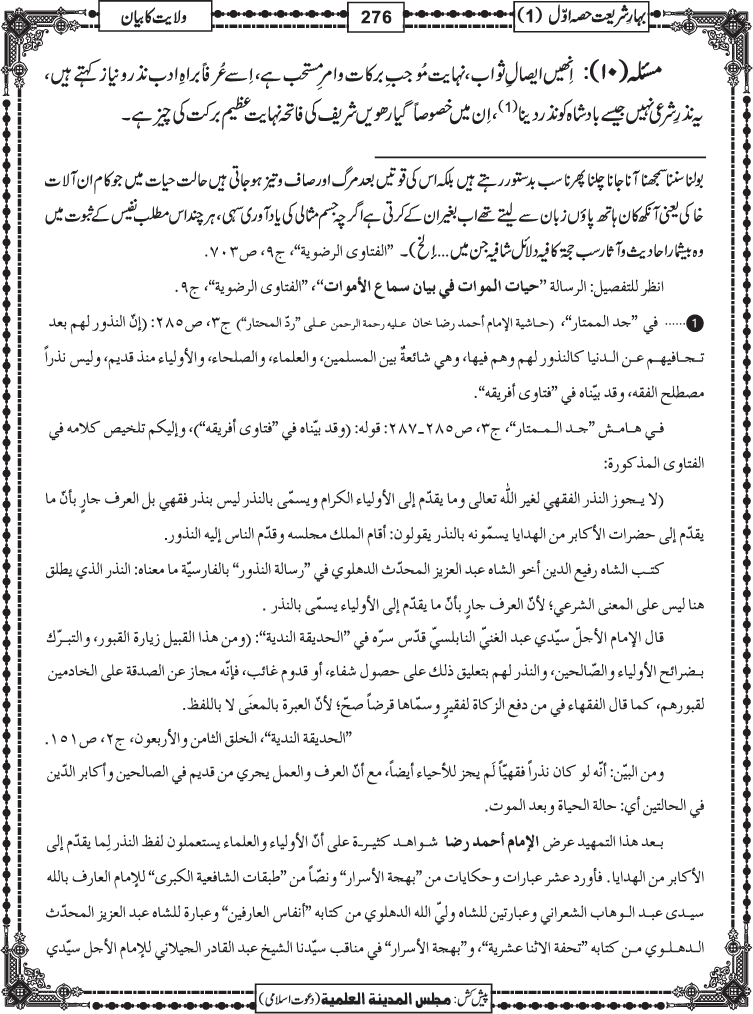 بہارِ شریعت حصہ اوّل (1)
276
ولایت کا بیان
مسئلہ (۱۰): اِنھیں ایصالِ ثواب، نہایت مُوجبِ برکات و امرِ مستحب ہے، اِسے عُرفاً براہِ ادب نذر و نیاز کہتے ہیں،
یہ نذرِ شرعی نہیں جیسے بادشاہ کو نذر دینا(1)، اِن میں خصوصاً گیارھویں شریف کی فاتحہ نہایت عظیم برکت کی چیز ہے۔
بولنا سننا سمجھنا آنا جانا چلنا پھرنا سب بدستور رہتے ہیں بلکہ اس کی قوتیں بعد مرگ اور صاف و تیز ہو جاتی ہیں حالت حیات میں جو کام ان آلات
خاکی یعنی آنکھ کان ہاتھ پاؤں زبان سے لیتے تھے اب بغیر ان کے کرتی ہے اگرچہ جسم مثالی کی یاد آوری سہی، ہر چند اس مطلب نفیس کے ثبوت میں
وہ بیشمار احادیث و آثار سب حجۃ کافیہ دلائل شافیہ جن میں.... إلخ)۔ ”الفتاوی الرضویة“، ج۹، ص۷۰۳.
انظر للتفصیل: الرسالة ”حیات الموات في بیان سماع الأموات“، ”الفتاوی الرضویة“، ج۹.
1 ...... في ”جد الممتار“، (حاشیة الإمام أحمد رضا خان علیه رحمة الرحمن علی ”ردّ المحتار“) ج۳، ص۲۸۵: (إنّ النذور لهم بعد
تجافیهم عن الدنیا کالنذور لهم وهم فیها، وهي شائعةٌ بین المسلمین، والعلماء، والصلحاء، والأولیاء منذ قدیم، ولیس نذراً
مصطلح الفقه، وقد بیّناه في ”فتاوی أفریقه“.
في هامش ”جد الممتار“، ج۳، ص۲۸۵-۲۸۷: قوله: (وقد بیّناه في ”فتاوی أفریقه“)، وإلیکم تلخیص کلامه في
الفتاوی المذکورة:
(لا یجوز النذر الفقهي لغیر الله تعالی وما یقدّم إلی الأولیاء الکرام ویسمّی بالنذر لیس بنذر فقهي بل العرف جارٍ بأنّ ما
یقدّم إلی حضرات الأکابر من الهدایا یسمّونه بالنذر یقولون: أقام الملك مجلسه وقدّم الناس إلیه النذور.
کتب الشاه رفیع الدین أخو الشاه عبد العزیز المحدّث الدهلوي في ”رسالة النذور“ بالفارسیّة ما معناه: النذر الذي یطلق
هنا لیس علی المعنی الشرعي؛ لأنّ العرف جارٍ بأنّ ما یقدّم إلی الأولیاء یسمّی بالنذر .
قال الإمام الأجلّ سیّدي عبد الغنيّ النابلسيّ قدّس سرّه في ”الحدیقة الندیة“: (ومن هذا القبیل زیارة القبور، والتبرّك
بضرائح الأولیاء والصّالحین، والنذر لهم بتعلیق ذلك علی حصول شفاء، أو قدوم غائب، فإنّه مجاز عن الصدقة علی الخادمین
لقبورهم، کما قال الفقهاء في من دفع الزکاة لفقیرٍ وسمّاها قرضاً صحّ؛ لأنّ العبرة بالمعنَی لا باللفظ.
”الحدیقة الندیة“، الخلق الثامن والأربعون، ج۲، ص۱۵۱.
ومن البیّن: أنّه لو کان نذراً فقهیّاً لَم یجز للأحیاء أیضاً، مع أنّ العرف والعمل یجري من قدیم في الصالحین وأکابر الدّین
في الحالتین أي: حالة الحیاة وبعد الموت.
بعد هذا التمهید عرض الإمام أحمد رضا شواهد کثیرة علی أنّ الأولیاء والعلماء یستعملون لفظ النذر لِما یقدّم إلی
الأکابر من الهدایا. فأورد عشر عبارات وحکایات من ”بهجة الأسرار“ ونصّاً من ”طبقات الشافعیة الکبری“ للإمام العارف بالله
سیدی عبد الوهاب الشعراني وعبارتین للشاه وليّ الله الدهلوي من کتابه ”أنفاس العارفین“ وعبارة للشاه عبد العزیز المحدّث
الدهلوي من کتابه ”تحفة الاثنا عشریة“، و”بهجة الأسرار“ في مناقب سیّدنا الشیخ عبد القادر الجیلاني للإمام الأجل سیّدي
پیش کش: مجلس المدینة العلمیة (دعوت اسلامی)